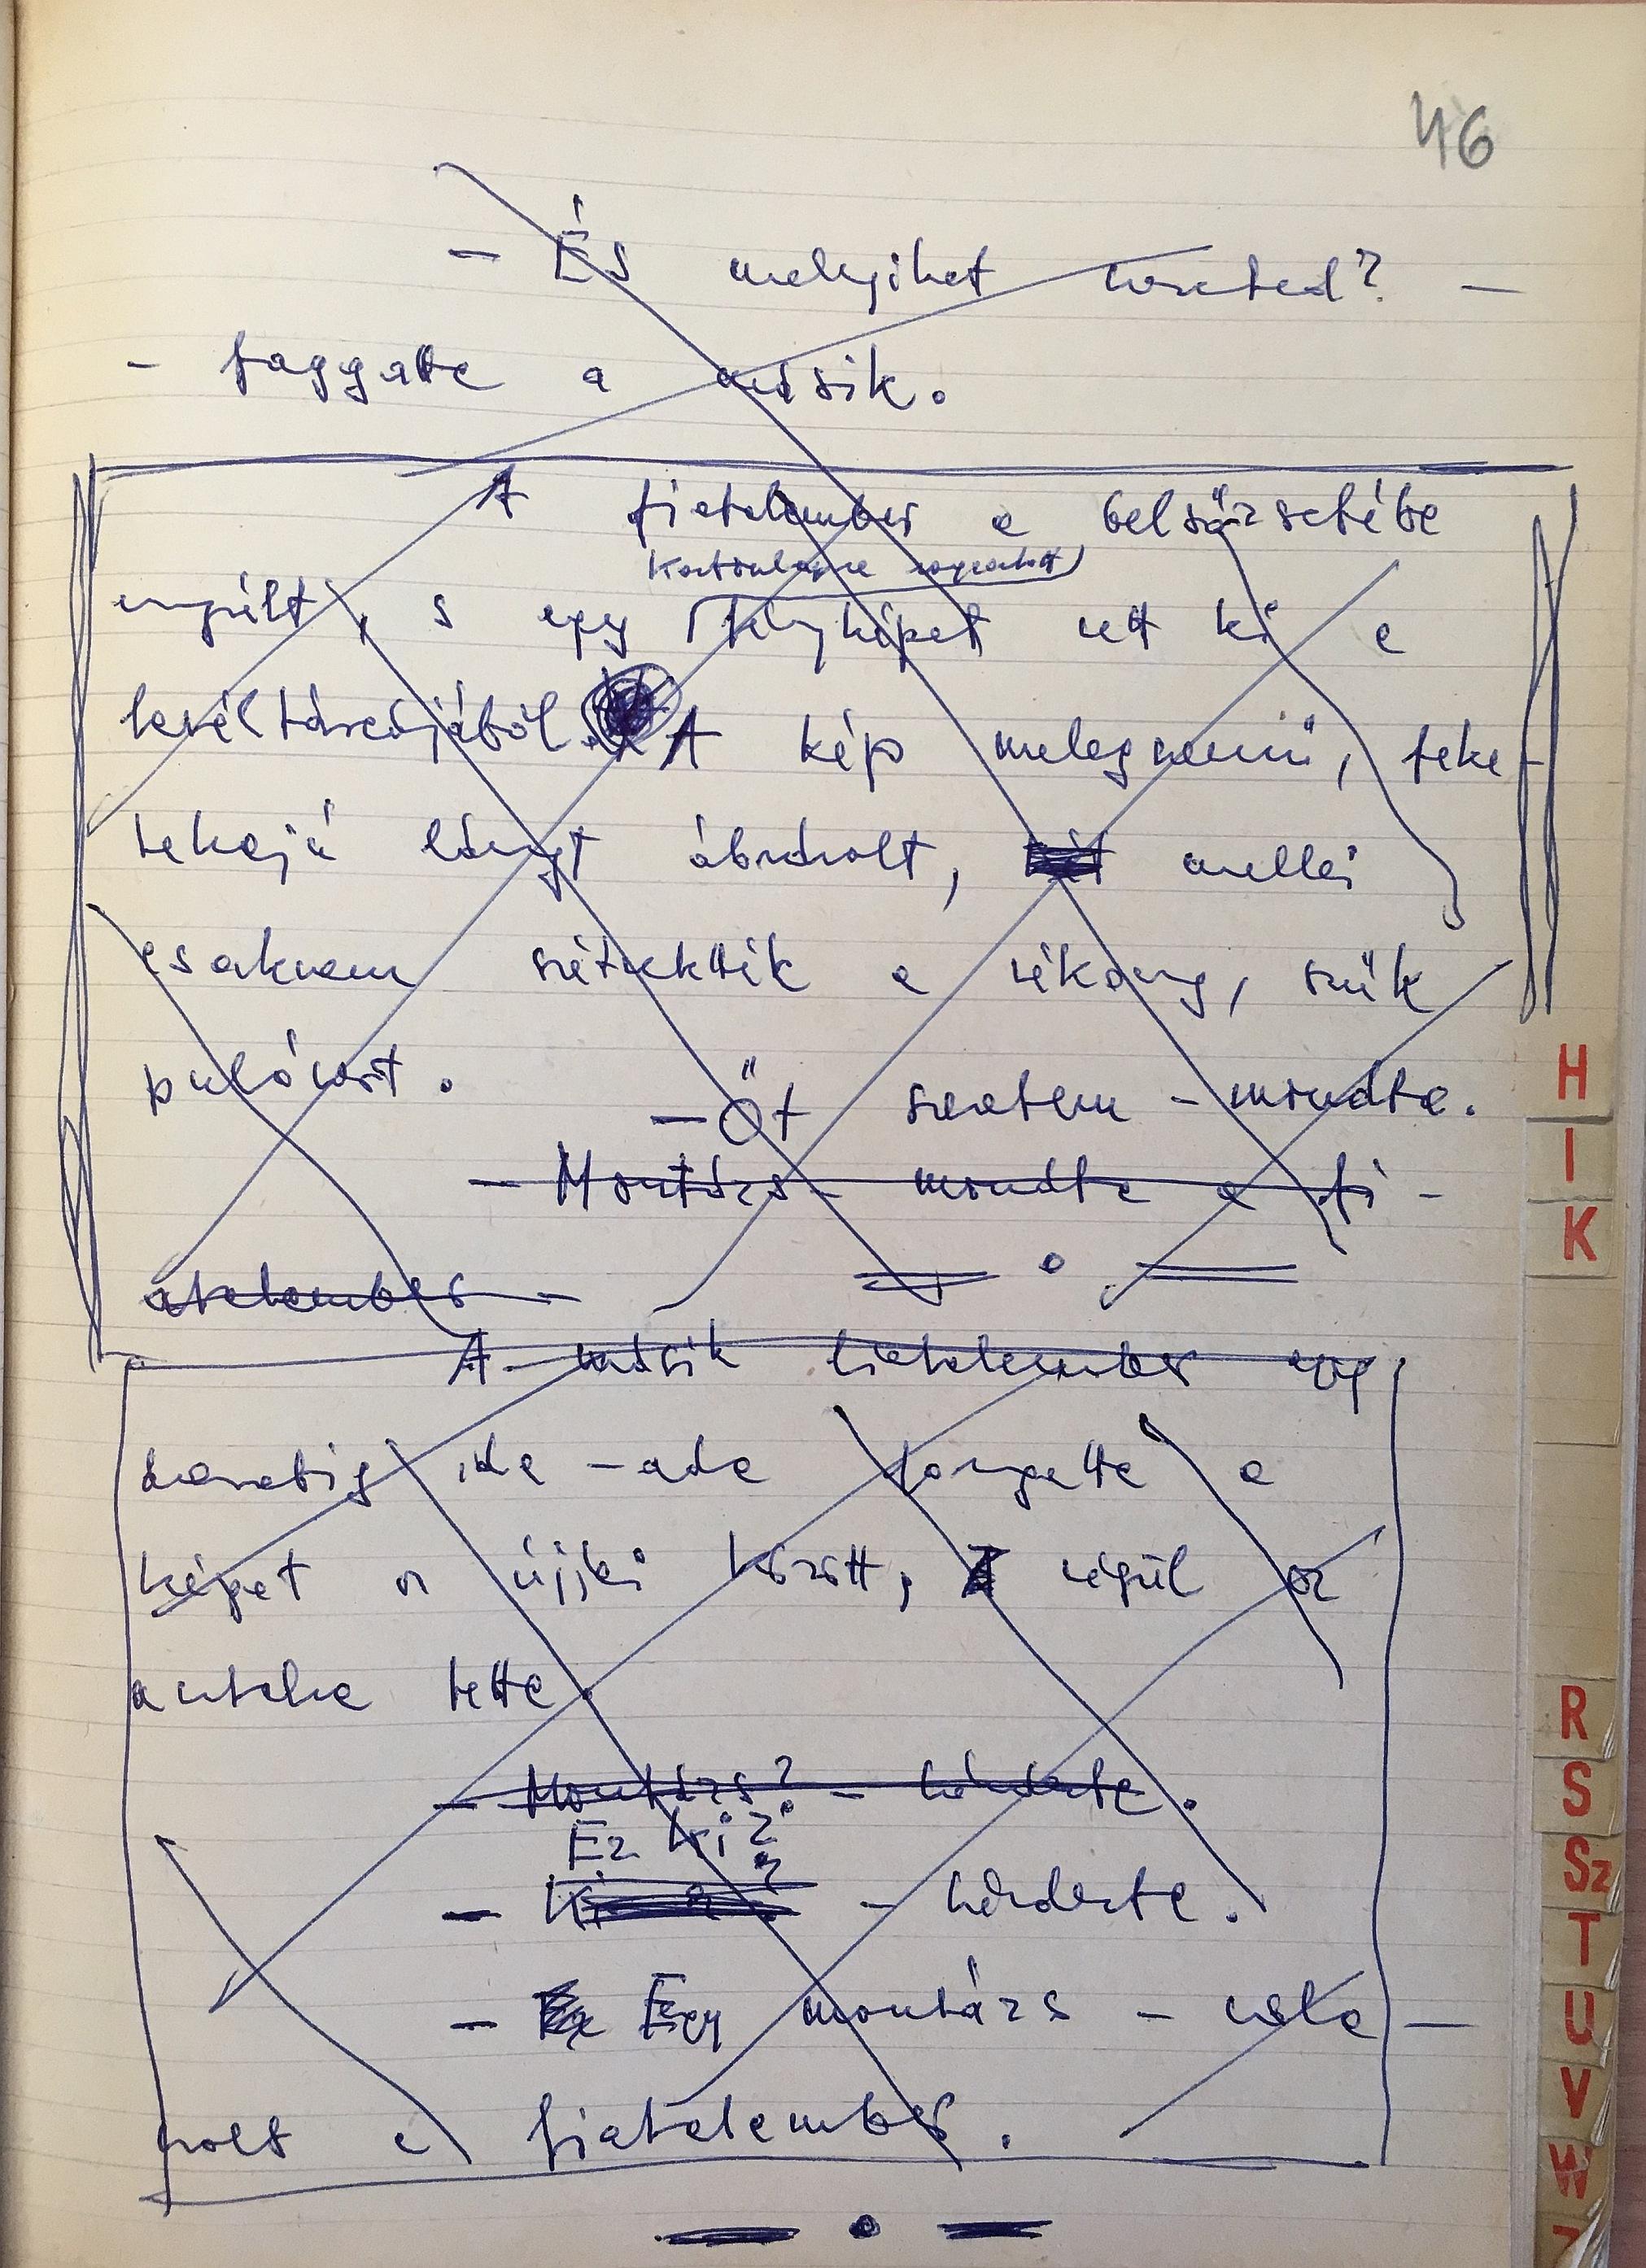 46
- És melyiket szereted? -
- faggatta a másik.
A fiatalember a belsőzsebébe
kartonlapra ragasztott
nyúlt, s egy fényképet vett ki a
levéltárcájából. A kép melegszemű, feke-
tehajú lányt ábrázolt, mellei
csaknem szétvetették a vékony, szűk
pulóvert.
- Őt szeretem - mondta.
- Montázs - mondta a fi-
atalember -
A másik fiatalember egy
darabig ide-oda forgatta a
képet az ujjai között, végül az
asztalra tette.
- Montázs? - kérdezte.
Ez ki?
- Ki ez? - kérdezte.
- Egy montázs - vála-
szolt a fiatalember.
H
I
K
R
S
Sz
T
U
V
W
Z